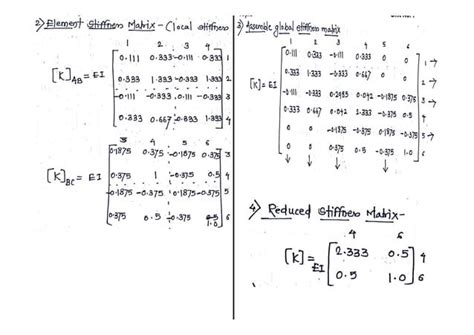 2) Element Stiffness Matrix - (local stiffness
1 2 3 4
0.111 0.333 -0.111 0.333 1
[K]AB = EI 0.333 1.333 -0.333 2
-0.111 -0.333 0.111 -0.333 3
0.333 0.667 -0.333 1.333 4
3 4 5 6
0.1875 0.375 -0.1875 0.375 3
[K]BC = EI 0.375 1 -0.375 0.5 4
-0.1875 -0.375 0.1875 -0.375 5
0.375 0.5 -0.375 1.0 6
3) Assemble global stiffness matrix
1 2 3 4 5 6
0.111 0.333 -0.111 0.333 0 0 1 →
[K] = EI 0.333 1.333 -0.333 0.667 0 0 2 →
-0.111 -0.333 0.042 -0.1875 0.375 3 →
0.333 0.667 0.042 -0.375 0.5 4
0 0 -0.1875 -0.375 0.1875 -0.375 5 →
0 0 0.375 0.5 -0.375 1.0 6
4) Reduced Stiffness Matrix-
4 6
[K] = EI 2.333 0.5 4
0.5 1.0 6